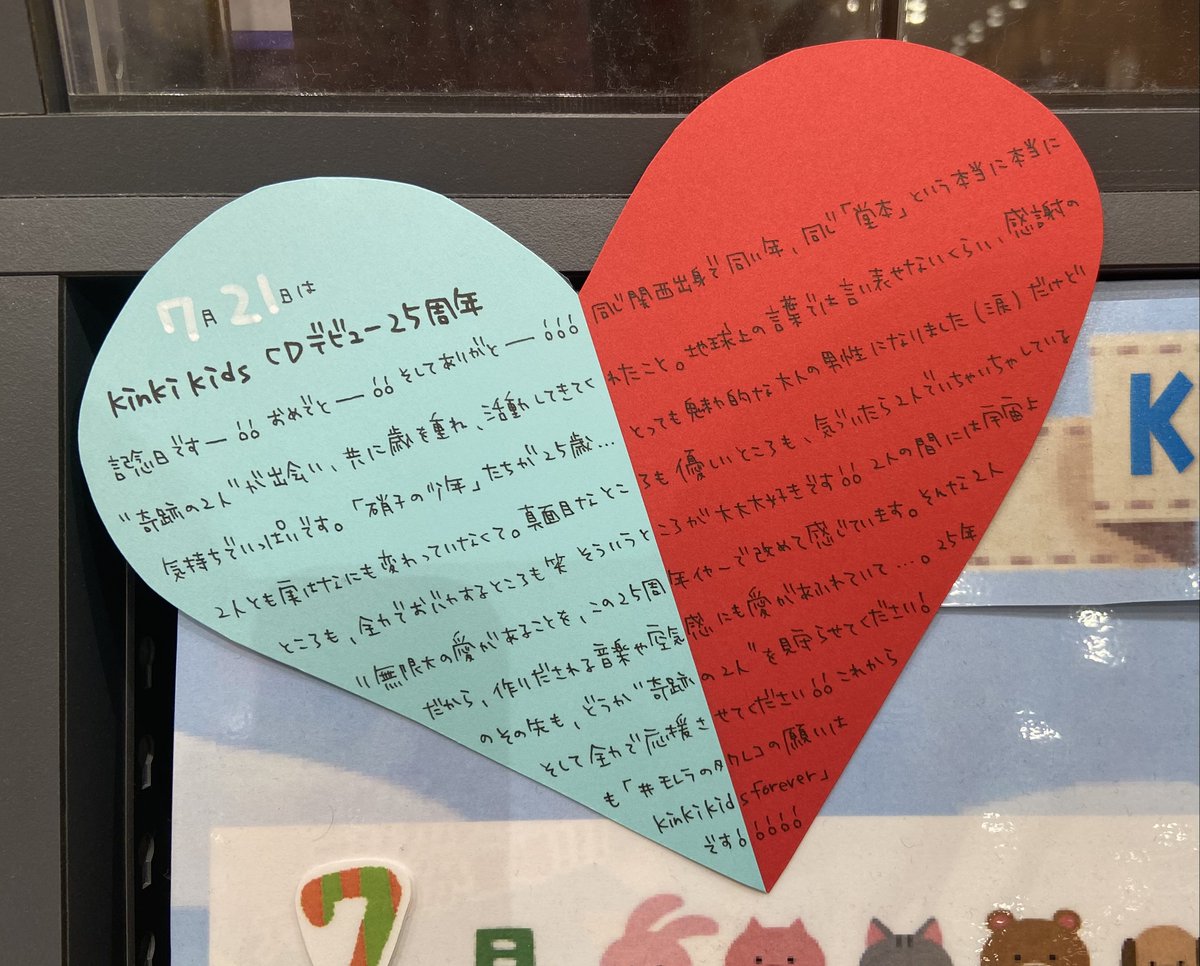 7月21日は
Kinki Kids CDデビュー25周年
記念日ですー!! おめでとー!! そしてありがとー!!! 同じ関西出身で同い年、同じ「堂本」という本当に本当に
"奇跡の2人"が出会い、共に歳を重ね、活動してきてくれたこと。地球上の言葉では言い表せないくらい、感謝の
気持ちでいっぱいです。「硝子の少年」たちが25歳… とっても魅力的な大人の男性になりました(涙)だけど
2人とも実はなにも変わっていなくて。真面目なところも優しいところも、気づいたら2人でいちゃいちゃしている
ところも、全力でおバカするところも笑 そういうところが大大大好きです!! 2人の間には宇宙よ
り無限大の愛があることを、この25周年イヤーで改めて感じています。そんな2人
だから、作りだされる音楽や空気感にも愛があふれていて…。25年
のその先も、どうか"奇跡の2人"を見守らせてください!
そして全力で応援させてください!! これから
も「#モレラのタワレコの願いは
Kinki Kids forever」
です!!!!!
K
7月